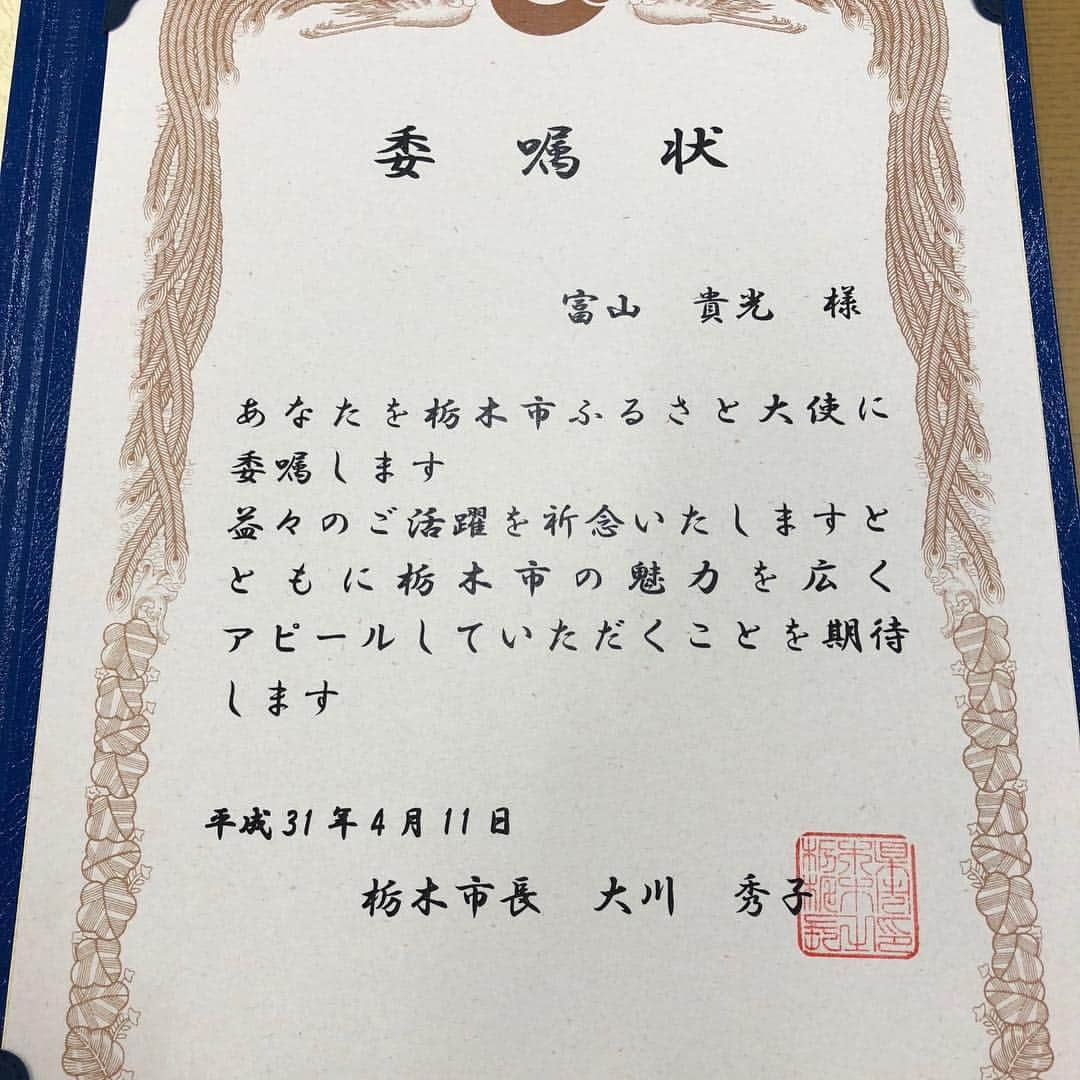 委嘱状
富山 貴光 様
あなたを栃木市ふるさと大使に
委嘱します
益々のご活躍を祈念いたしますと
ともに栃木市の魅力を広く
アピールしていただくことを期待
します
平成31年4月11日
栃木市長 大川 秀子